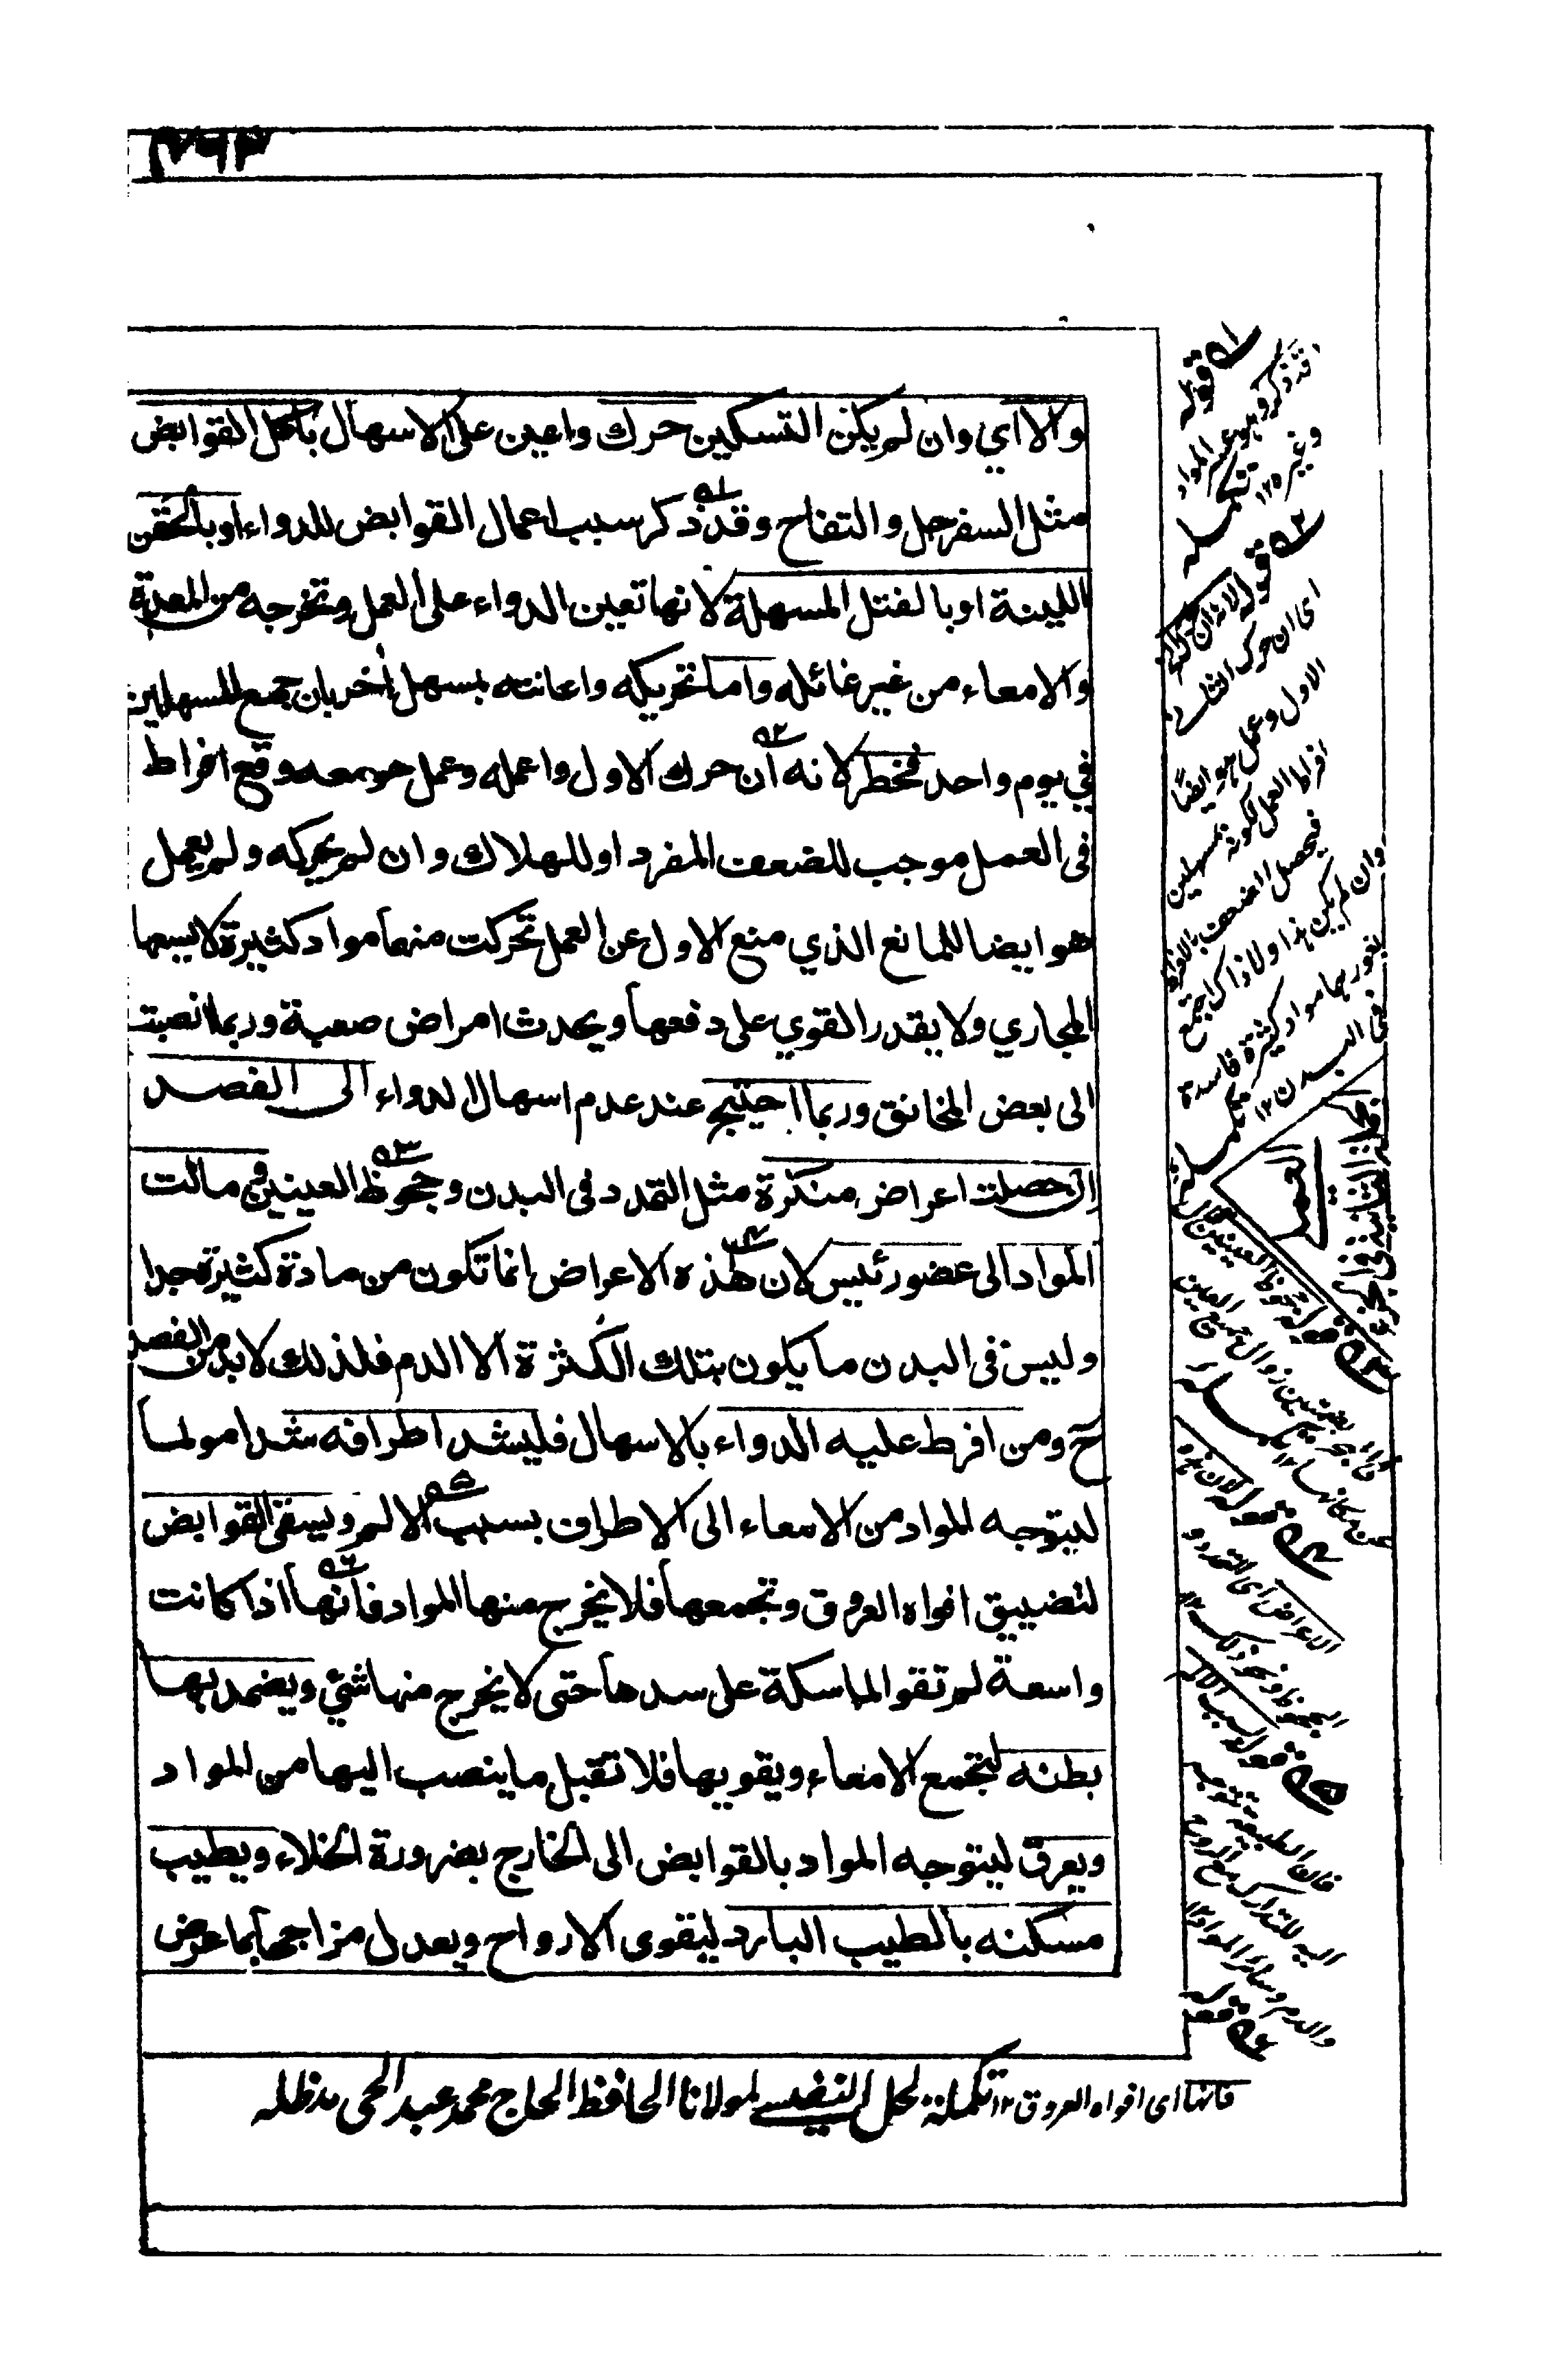 ٧٦٣
والا اي وان لم يكن التسكين حرك واعين على الاسهال باكل القوابض
مثل السفرجل والتفاح وقد ذكر سبب اعمال القوابض للدواء او بالحقن
اللينة او بالفتل المسهلة لانها تعين الدواء على العمل وتخرجه من المعدة
والامعاء من غير غائلة واما تحريكه واعانته بمسهل اخر بان جمع المسهلين
في يوم واحد فخطر لانه ان حرك الاول واعمله وعمل هو معه وقع افراط
فى العمل موجب للضعف المفرد او للهلاك وان لم يحركه ولم يعمل
هو ايضا للمانع الذي منع الاول عن العمل تحركت منها مواد كثيرة لا يسعها
المجاري ولا يقدر القوي على دفعها ويحدث امراض صعبة وربما انصبت
الى بعض المخانق وربما احتيج عند عدم اسهال الدواء الى الفصد
ان حصلت اعراض منكرة مثل التمدد فى البدن وجحوظ العينين في مالت
المواد الى عضو رئيس لان هذه الاعراض انما تكون من مادة كثيرة جدا
وليس فى البدن ما يكون بتلك الكثرة الا الدم فلذلك لابد من الفصد
ح ومن افرط عليه الدواء بالاسهال فليشد اطرافه شدا مولما
ليتوجه المواد من الامعاء الى الاطراف بسبب الالم ويسقى القوابض
لتضييق افواه العروق وتجمعها فلا يخرج منها المواد فانها اذا كانت
واسعة لم تقو الماسكة على سدها حتى لا يخرج منها شئ ويضمد بها
بطنه لتجمع الامعاء ويقويها فلا تقبل ما ينصب اليها من المواد
ويعرق ليتوجه المواد بالقوابض الى الخارج بضرورة الخلاء ويطيب
مسكنه بالطيب البارد ليقوى الارواح ويعدل مزاجها بما عرض
١ قوله
قد ذكر
وغيره ١٢
تكمله
٢ قوله لانه ان حرك
اى ان حرك الثانى
الاول وعمل هو ايضا
افراط العمل لكونه مسهلين
فيحصل الضعف بالافراط
وان لم يكن هذا ولا ذاك اجتمع
مواد كثيرة فاسدة
فى البدن ١٢
تكمله
٣ قوله جحوظ العينين
٤ قوله لان هذه
الاعراض اى التمدد و
الجحوظ ونحو ذلك ١٢
٥ قوله بسبب الالم
فان الطبيعة تتوجه
اليه للتدارك مع الروح
والدم وسائر المواد ١٢
٦ قوله
فانها اى افواه العروق ١٢ تكملة لحل النفيسى لمولانا الحافظ الحاج محمد عبد الحى مدظله